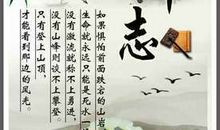 志
如果惧怕前面跌宕的山岩
生命就永远只能是死水一
没有激流就称不上勇进
没有山峰则谈不上攀登
只有登上山顶
才能看到那边的风光。